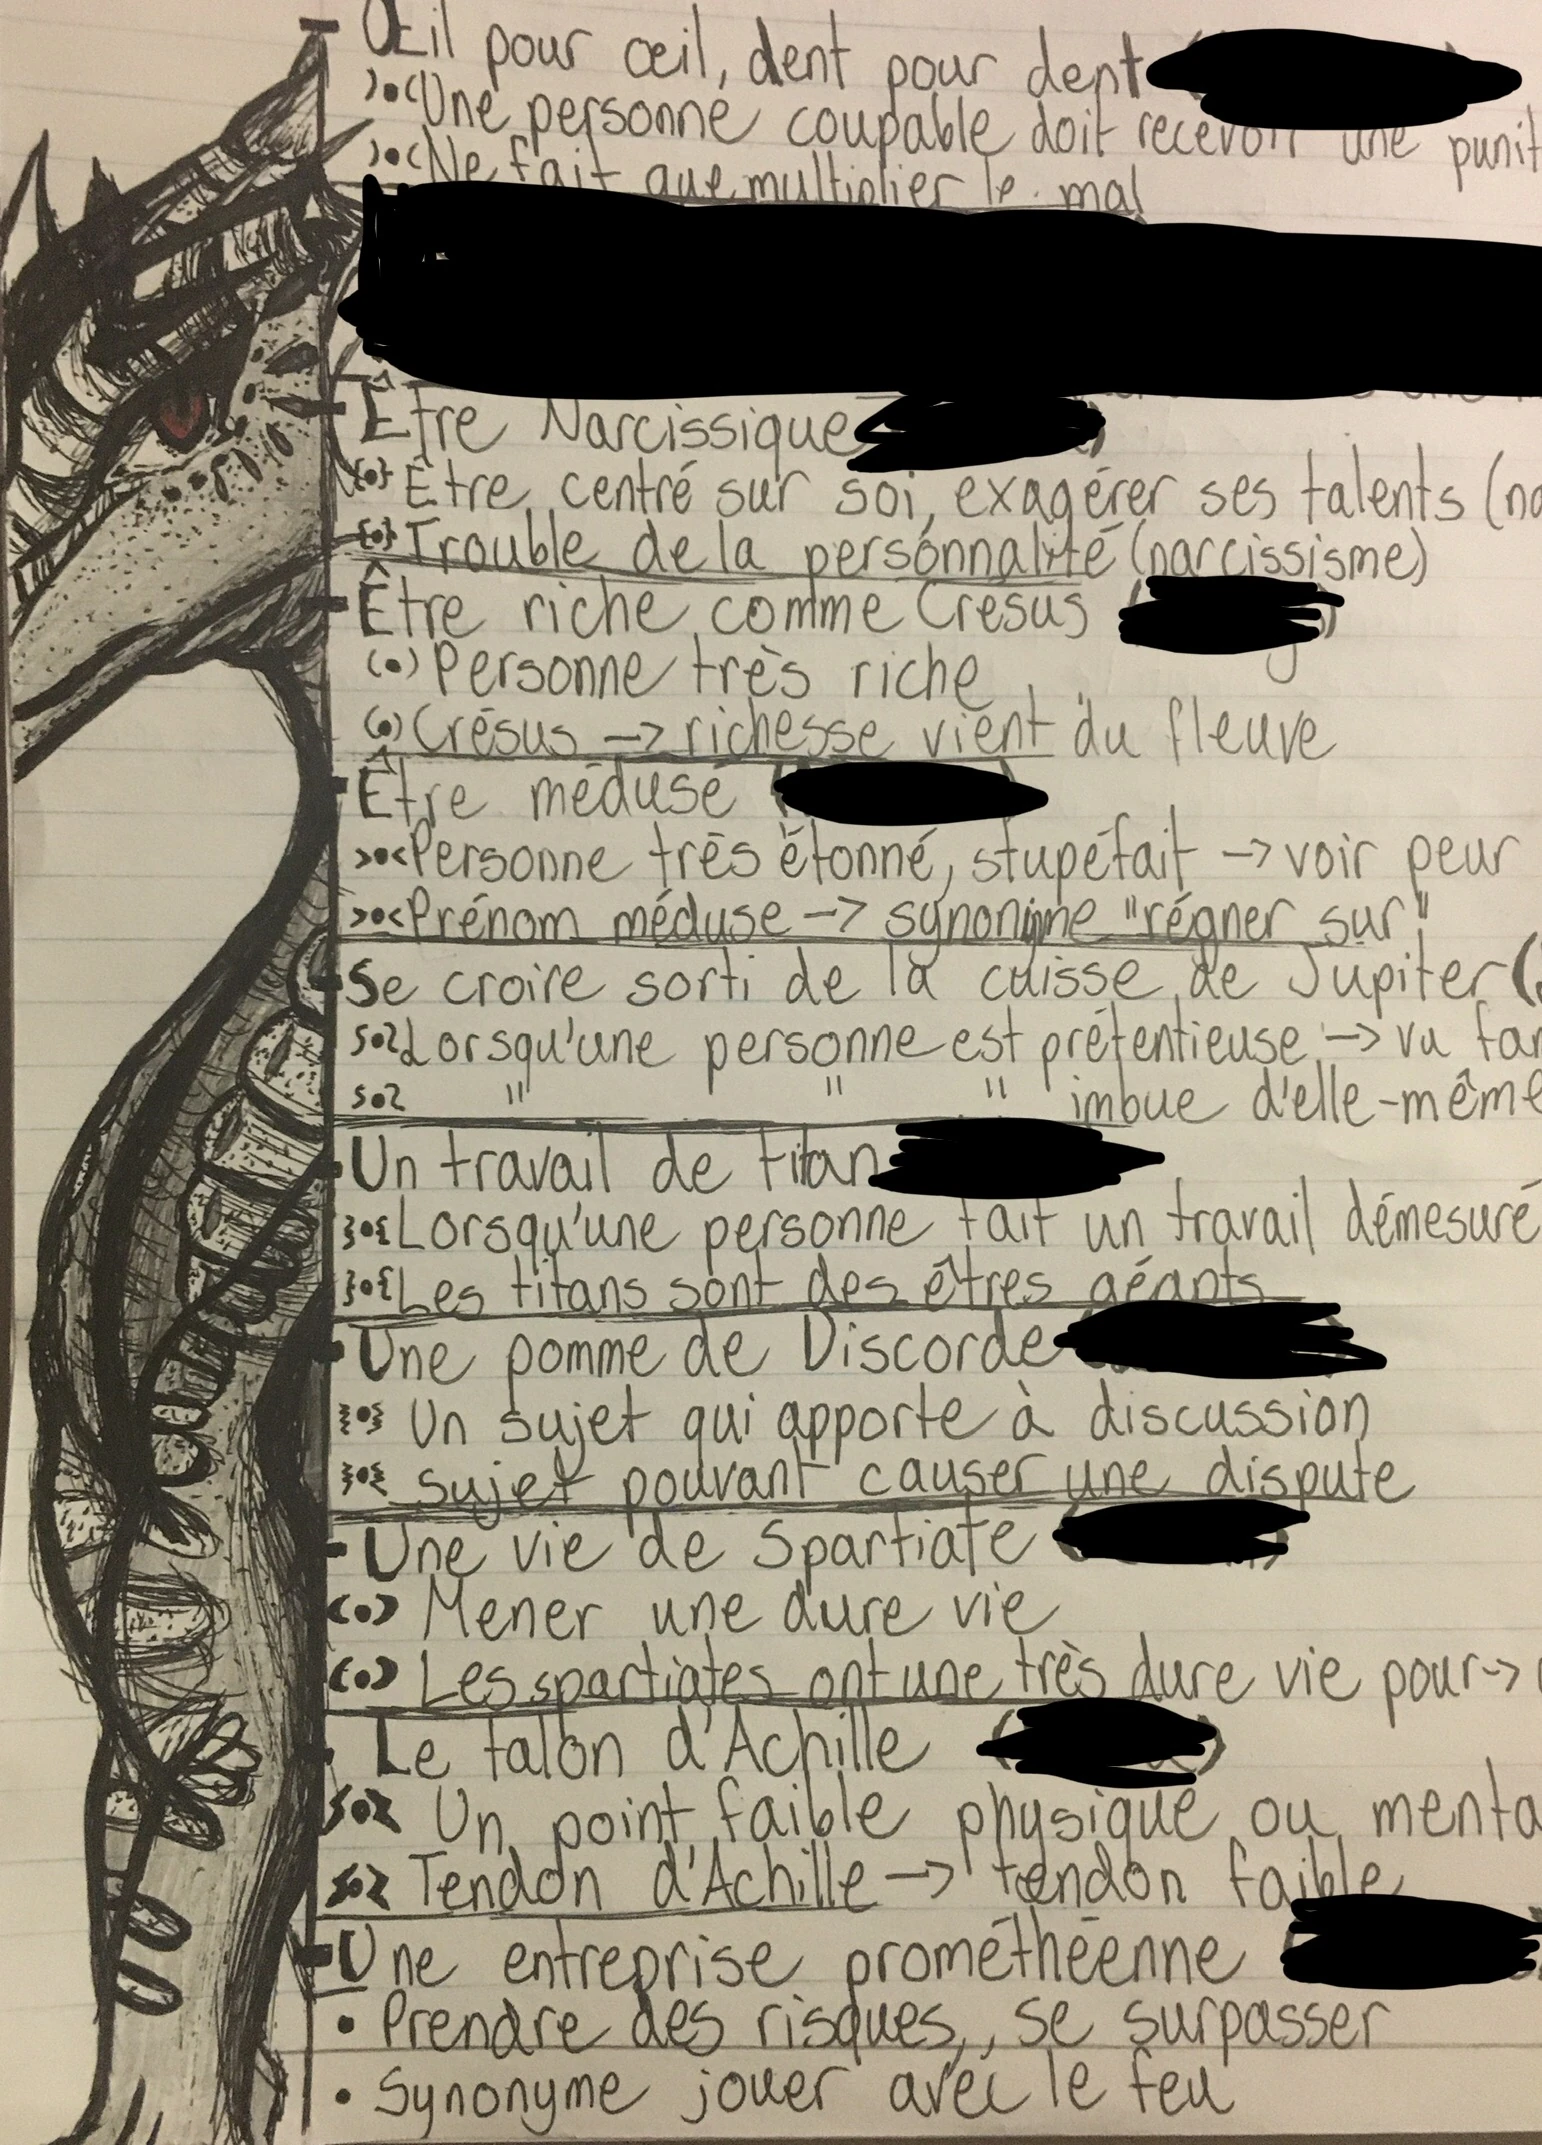 Œil pour œil, dent pour dent
Une personne coupable doit recevoir une punit
Ne fait que multiplier le mal
Être Narcissique
Être centré sur soi, exagérer ses talents (na
Trouble de la personnalité (narcissisme)
Être riche comme Crésus
Personne très riche
Crésus -> richesse vient du fleuve
Être médusé
Personne très étonné, stupéfait -> voir peur
Prénom méduse -> synonyme "régner sur"
Se croire sorti de la cuisse de Jupiter (
Lorsqu'une personne est prétentieuse -> vu fam
" " " imbue d'elle-même
Un travail de titan
Lorsqu'une personne fait un travail démesuré
Les titans sont des êtres géants
Une pomme de Discorde
Un sujet qui apporte à discussion
sujet pouvant causer une dispute
Une vie de Spartiate
Mener une dure vie
Les spartiates ont une très dure vie pour ->
Le talon d'Achille
Un point faible physique ou menta
Tendon d'Achille -> tendon faible
Une entreprise prométhéenne
• Prendre des risques, se surpasser
• Synonyme jouer avec le feu